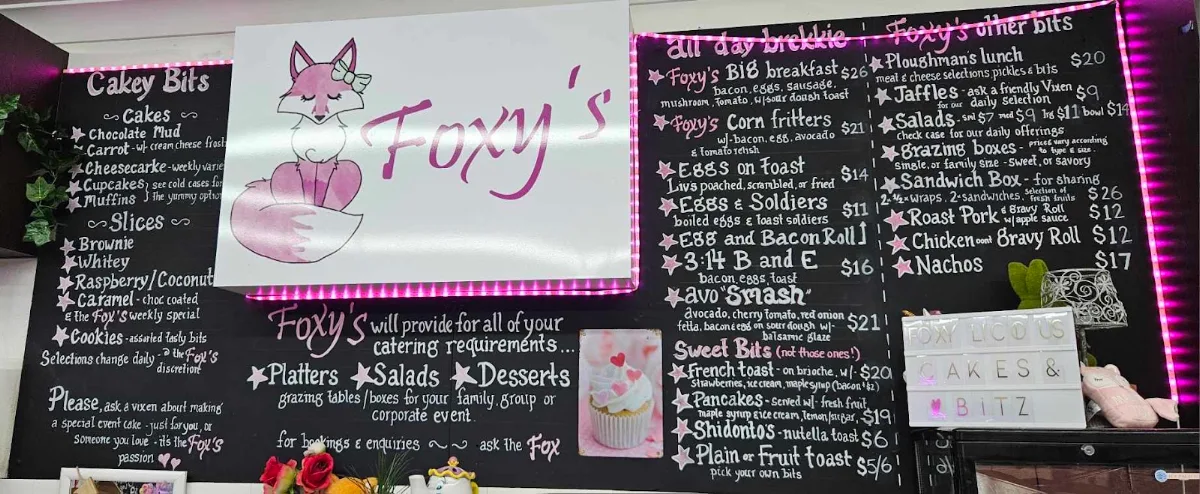 Cakey Bits
Cakes
Chocolate Mud
Carrot - w/ cream cheese frost
Cheesecarke - weekly varie
Cupcakes } see cold cases for
Muffins } the yummy option
Slices
Brownie
Whitey
Raspberry/Coconut
Caramel - choc coated
& the Fox's weekly special
Cookies - assorted tasty bits
Selections change daily - @ the Fox's
discretion
Please, ask a vixen about making
a special event cake - just for you, or
someone you love - it's the Fox's
passion
Foxy's
Foxy's will provide for all of your
catering requirements...
Platters Salads Desserts
grazing tables / boxes for your family, group or
corporate event.
for bookings & enquiries ~~ ask the Fox
all day brekkie
Foxy's Big breakfast $26
bacon, eggs, sausage,
mushroom, tomato, w/ sour dough toast
Foxy's Corn fritters $21
w/- bacon, egg, avocado
& tomato relish
Eggs on toast $14
Livs poached, scrambled, or fried
Eggs & Soldiers $11
boiled eggs & toast soldiers
Egg and Bacon Roll
3:14 B and E $16
bacon, eggs, toast
avo "Smash"
avocado, cherry tomato, red onion
fetta, bacon & egg on sour dough w/- $21
balsamic glaze
Sweet Bits (not those ones!)
French toast - on brioche, w/- $20
Strawberries, ice cream, maple syrup (bacon $2)
Pancakes - served w/- fresh fruit
maple syrup & ice cream, lemon/sugar, $19
Shidonto's - nutella toast $6
Plain or Fruit toast $5/6
pick your own bits
Foxy's other bits
Ploughman's lunch $20
meat & cheese selections, pickles & bits
Jaffles - ask a friendly Vixen $9
for our daily selection
Salads - sml $7 med $9 lrg $11 bowl $14
check case for our daily offerings
grazing boxes - prices vary according
to type & size.
single, or family size - sweet, or savory
Sandwich Box - for sharing
2 1/2 x wraps, 2 x sandwiches, selection of fresh fruits $26
Roast Pork & Gravy Roll w/ apple sauce $12
Chicken and gravy Roll $12
Nachos $17
FOXY LICIOUS
CAKES &
BITZ